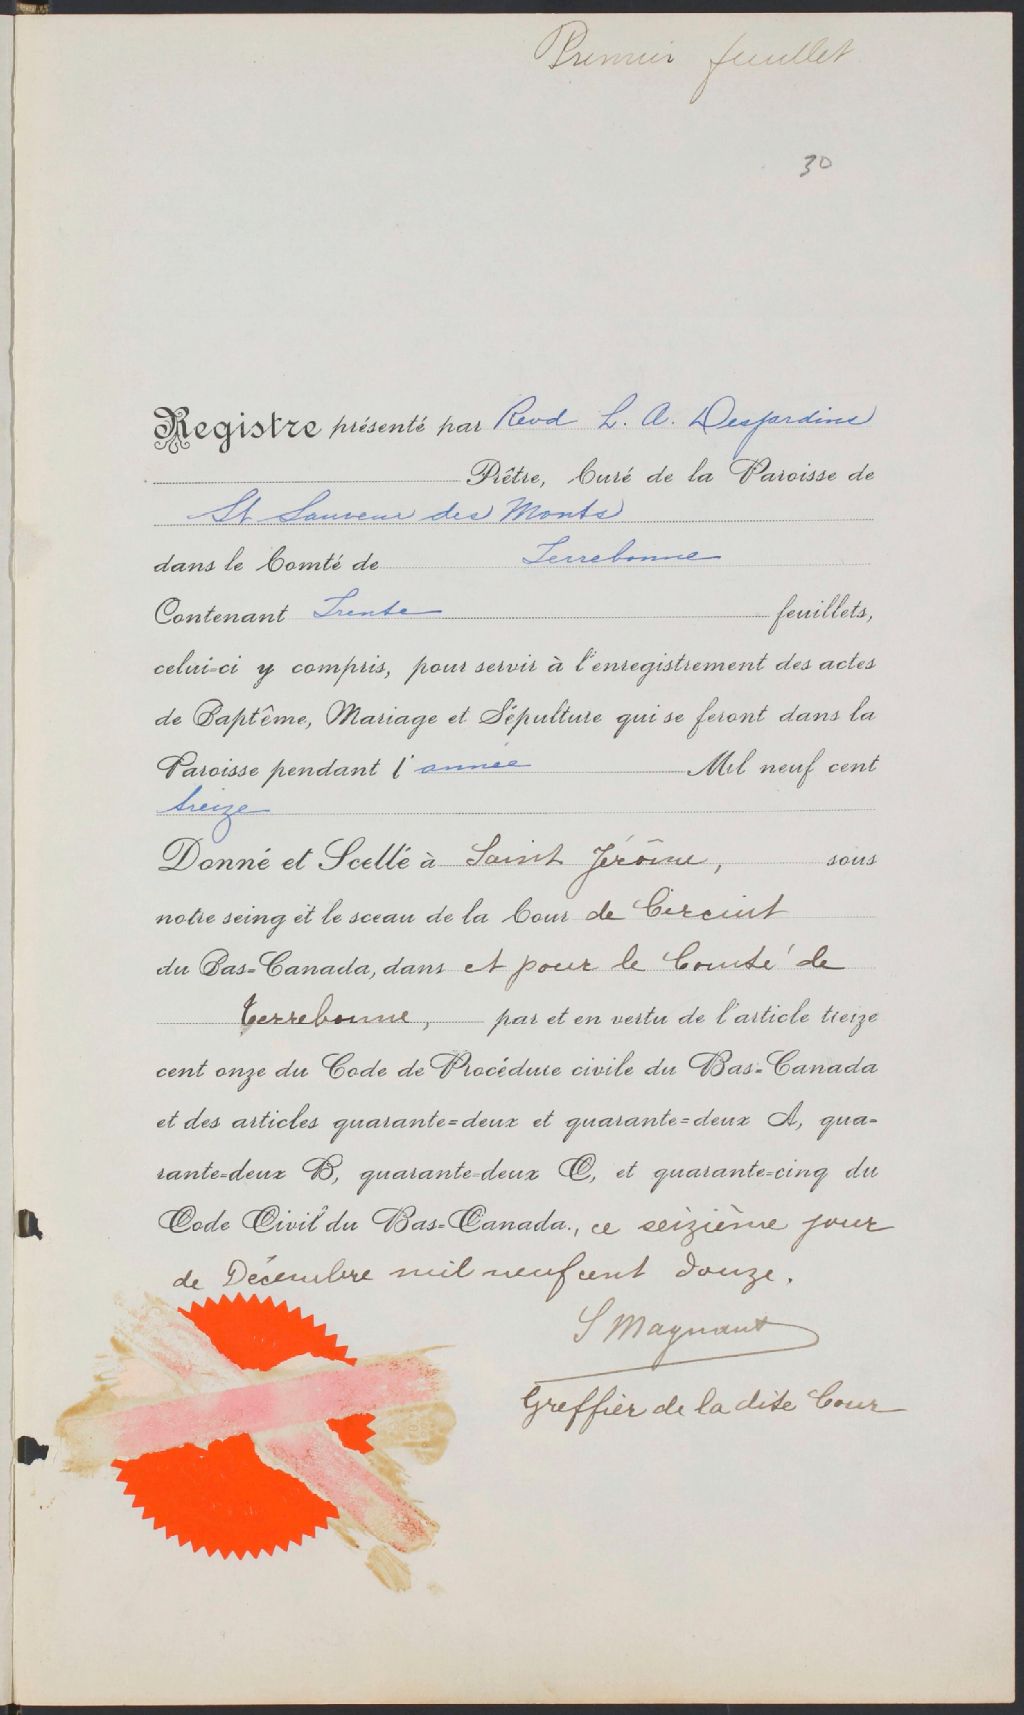 Premier feuillet
30
Registre présenté par Revd L. A. Desjardins
Prêtre, Curé de la Paroisse de
St Sauveur des Monts
dans le Comté de Terrebonne
Contenant Trente feuillets,
celui-ci y compris, pour servir à l'enregistrement des actes
de Baptême, Mariage et Sépulture qui se feront dans la
Paroisse pendant l'année Mil neuf cent
treize
Donné et Scellé à Saint Jérôme, sous
notre seing et le sceau de la Cour de Circuit
du Bas-Canada, dans et pour le Comté de
Terrebonne, par et en vertu de l'article treize
cent onze du Code de Procédure civile du Bas-Canada
et des articles quarante-deux et quarante-deux A, qua-
rante-deux B, quarante-deux C, et quarante-cinq du
Code Civil du Bas-Canada., ce seizième jour
de Décembre mil neuf cent douze.
S Magnant
Greffier de la dite Cour